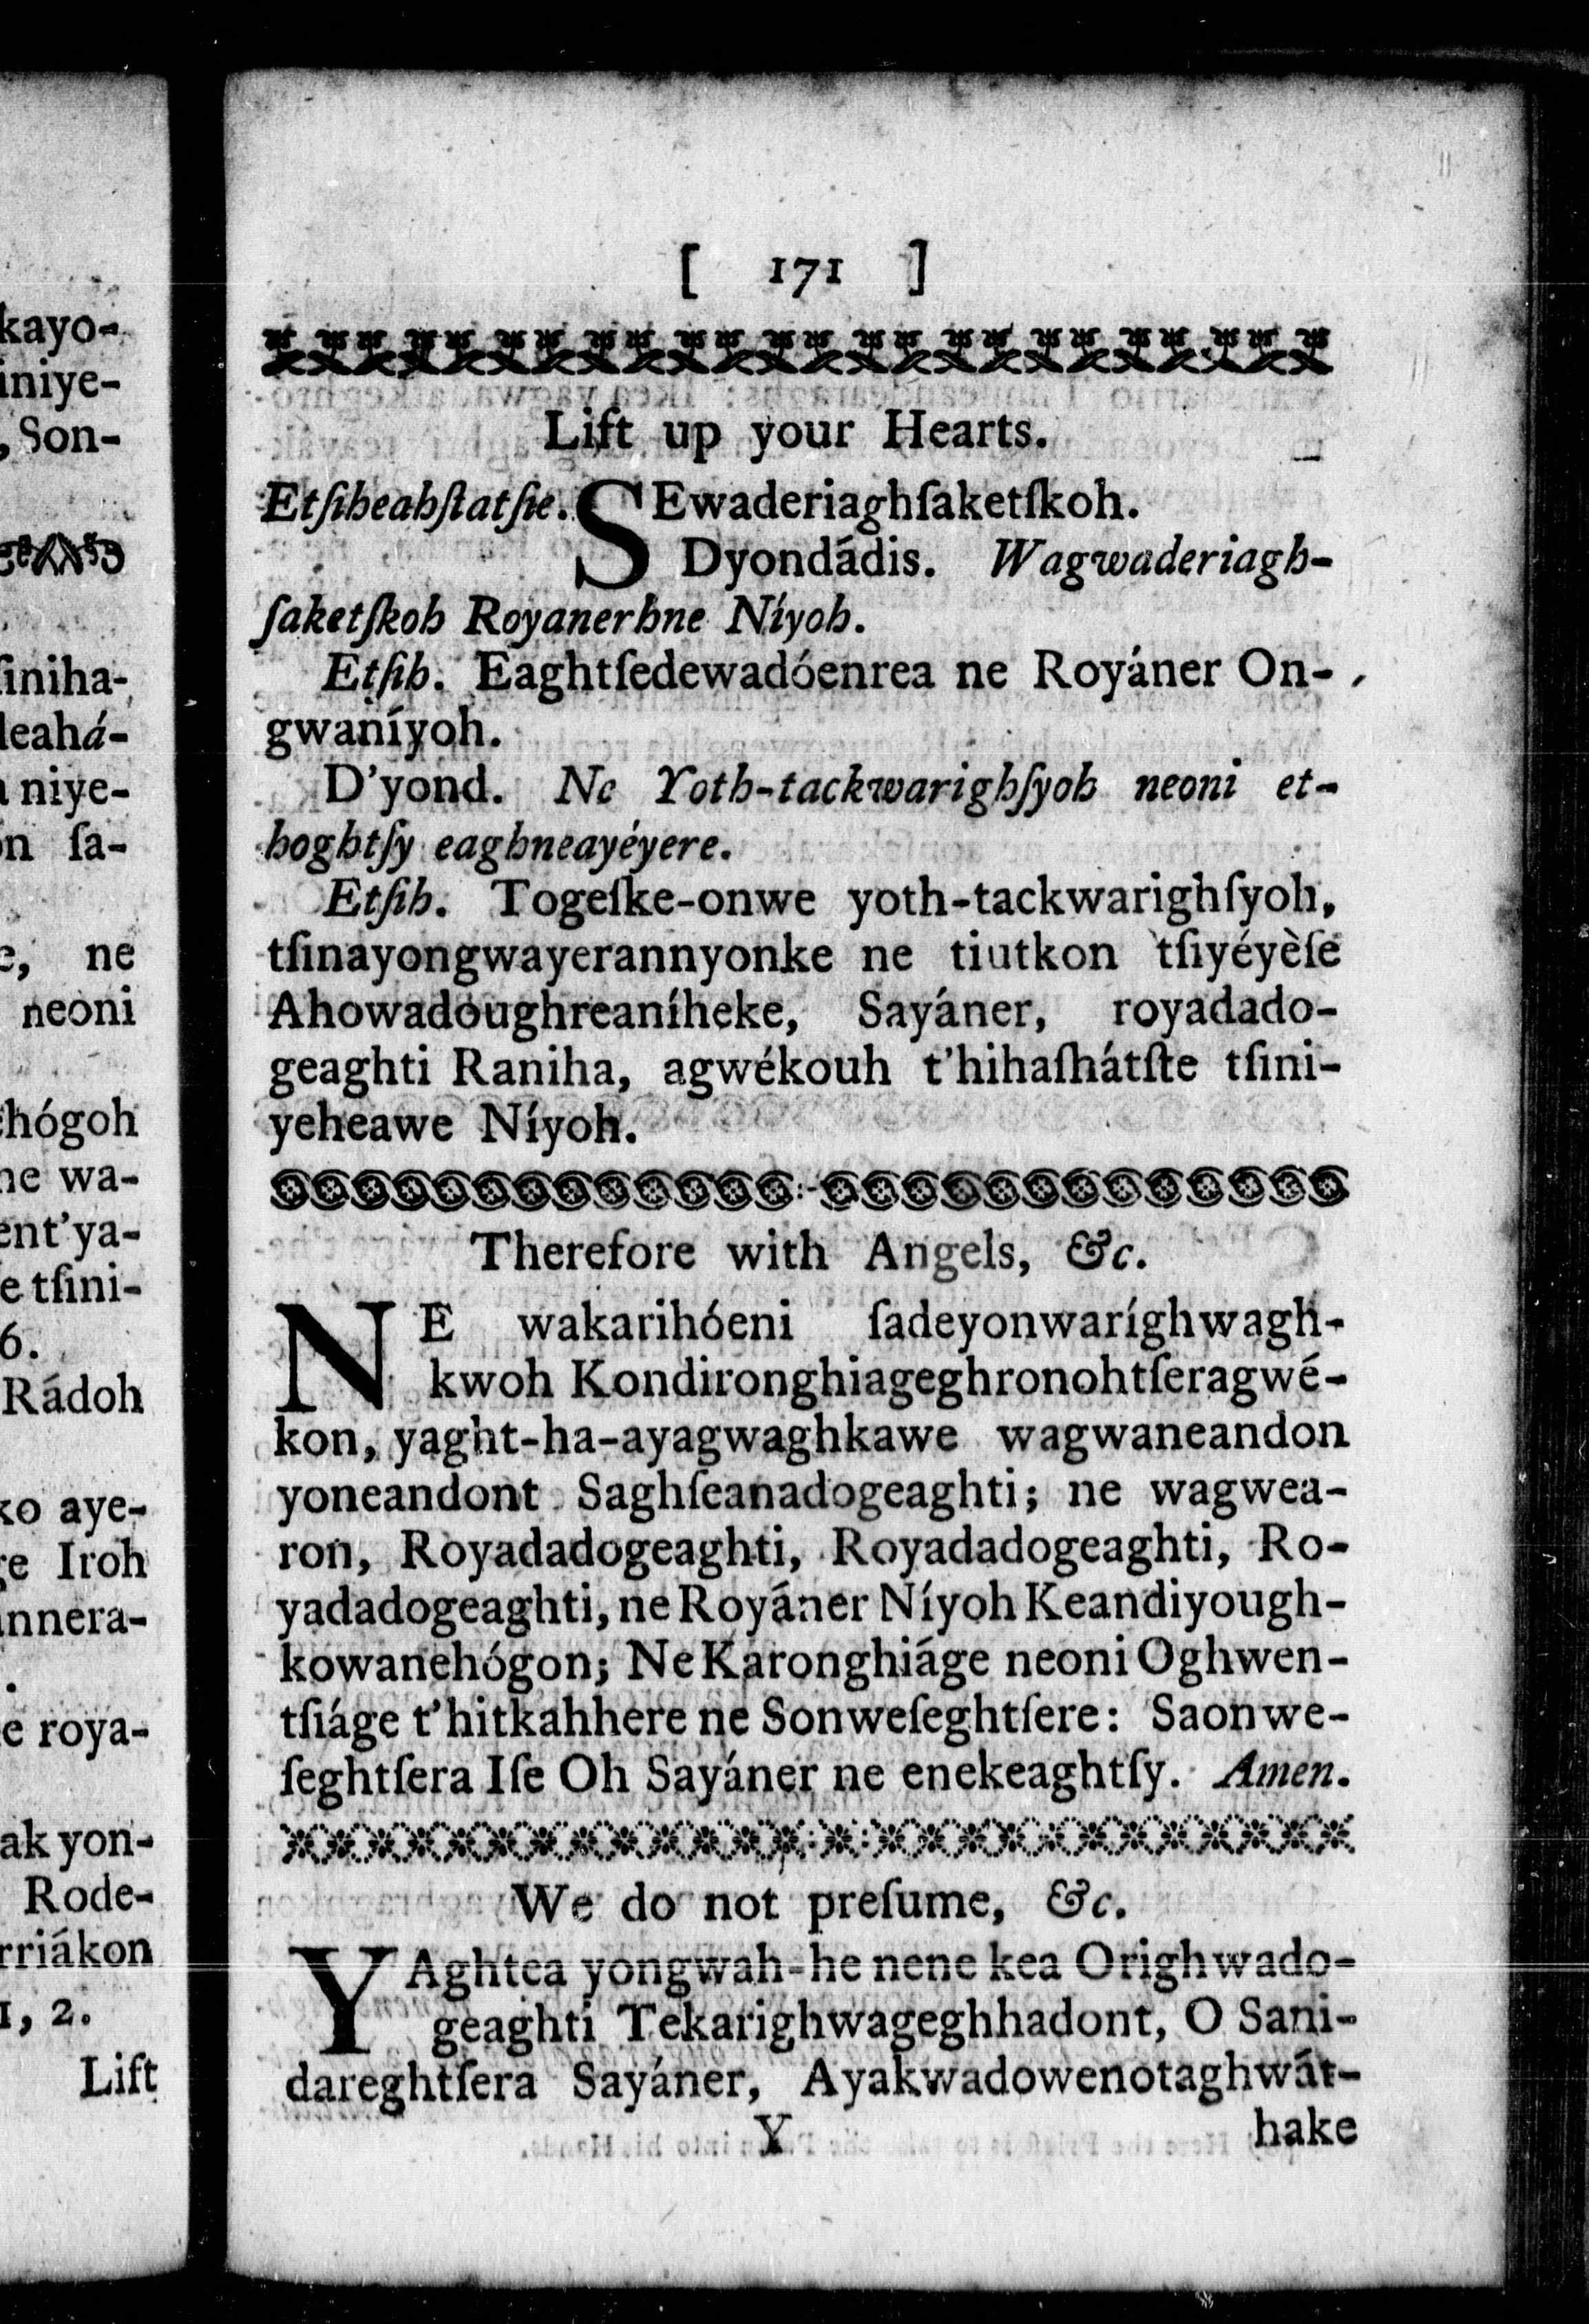 kayo-
iniye-
, Son-
siniha-
leahá-
niye-
ſa-
e, ne
neoni
hógoh
ne wa-
ent'ya-
e tſini-
6.
Rádoh
ko aye-
ge Iroh
nnera-
e roya-
ak yon-
Rode-
rriákon
1, 2.
Lift
[ 171 ]
Lift up your Hearts.
Etſiheahſtatſie. SEwaderiaghſaketſkoh.
Dyondádis. Wagwaderiagh-
ſaketſkoh Royanerhne Níyoh.
Etſih. Eaghtſedewadóenrea ne Royáner On-
gwaníyoh.
D'yond. Ne Yoth-tackwarighſyoh neoni et-
hoghtſy eaghneayéyere.
Etſih. Togeſke-onwe yoth-tackwarighſyoh,
tſinayongwayerannyonke ne tiutkon tſiyéyèſe
Ahowadoughreaníheke, Sayáner, royadado-
geaghti Raniha, agwékouh t'hihaſhátſte tſini-
yeheawe Níyoh.
Therefore with Angels, &c.
NE wakarihóeni ſadeyonwaríghwagh-
kwoh Kondironghiageghronohtſeragwé-
kon, yaght-ha-ayagwaghkawe wagwaneandon
yoneandont Saghſeanadogeaghti; ne wagwea-
ron, Royadadogeaghti, Royadadogeaghti, Ro-
yadadogeaghti, ne Royáner Níyoh Keandiyough-
kowanehógon; Ne Karonghiáge neoni Oghwen-
tſiáge t'hitkahhere ne Sonweſeghtſere: Saonwe-
ſeghtſera Iſe Oh Sayáner ne enekeaghtſy. Amen.
We do not preſume, &c.
YAghtea yongwah-he nene kea Orighwado-
geaghti Tekarighwageghhadont, O Sani-
dareghtſera Sayáner, Ayakwadowenotaghwát-
Y hake